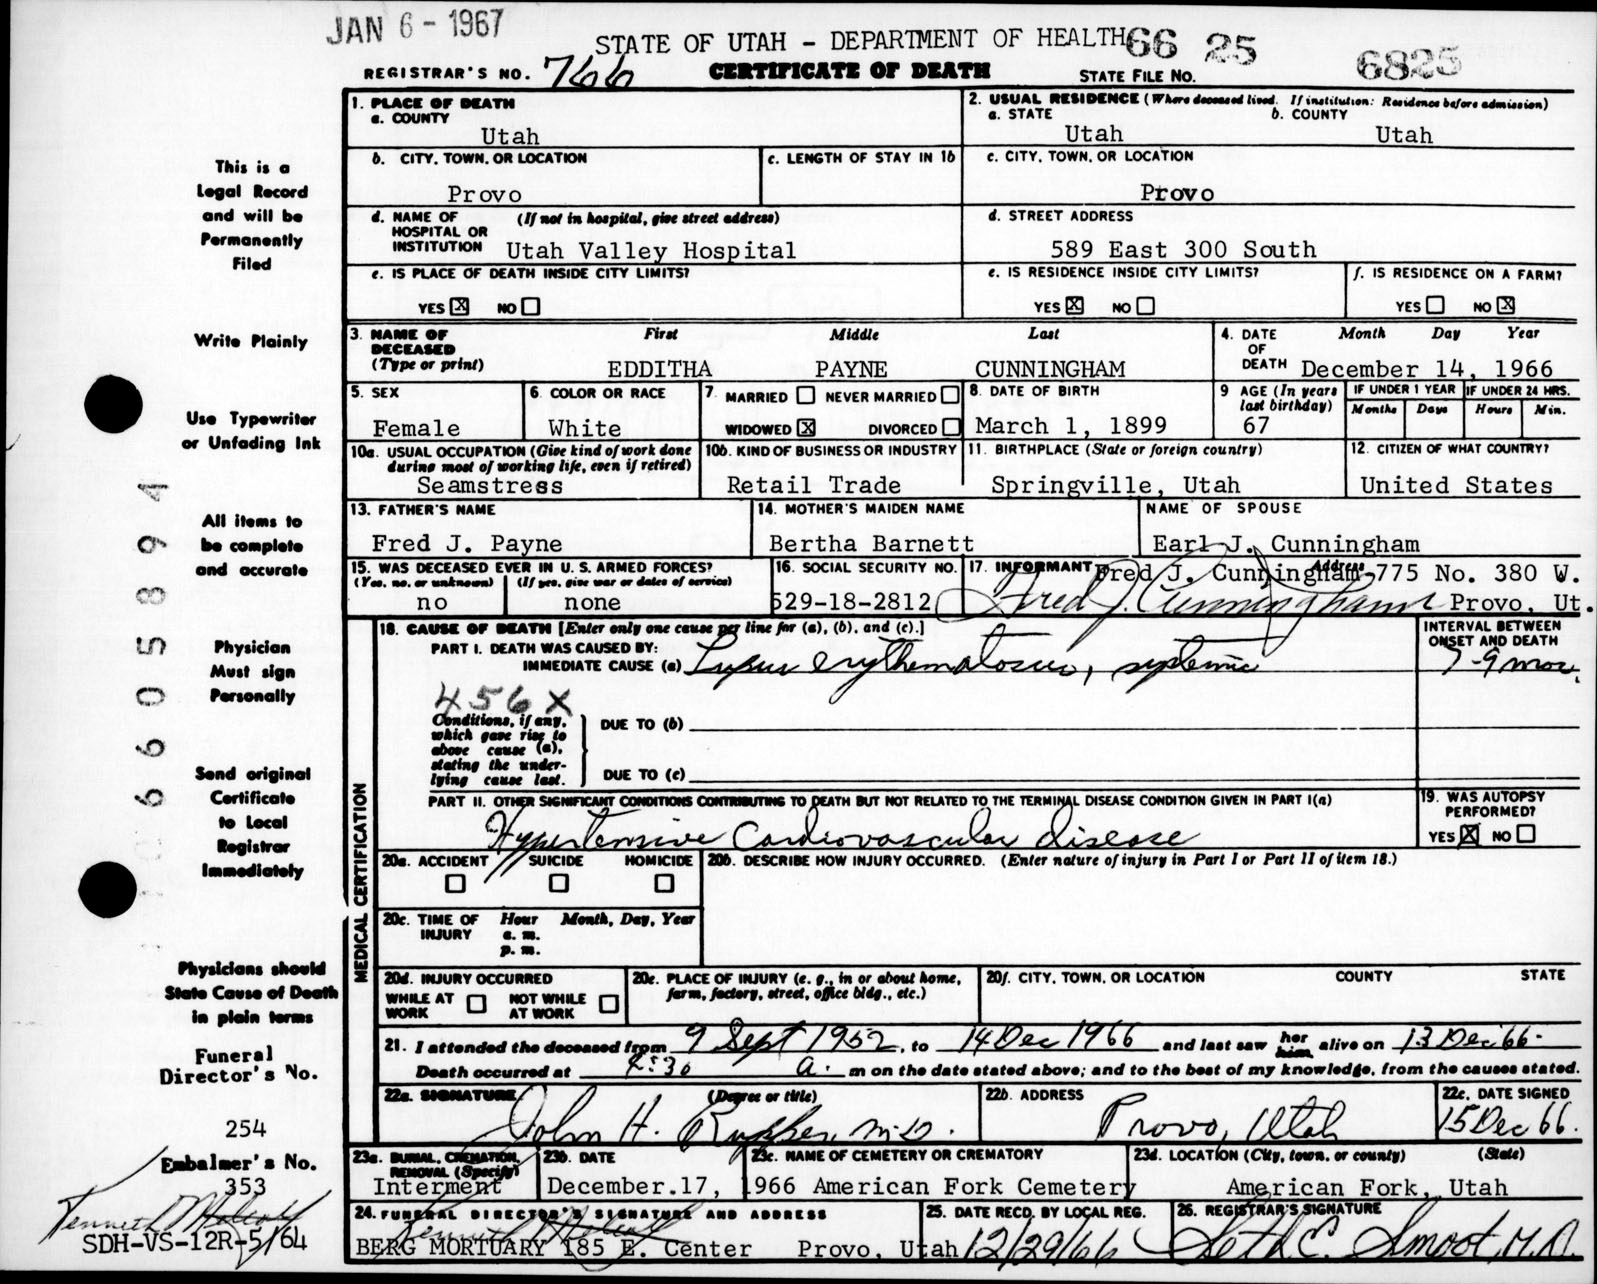 JAN 6 - 1967
STATE OF UTAH - DEPARTMENT OF HEALTH 66 25 6825
REGISTRAR'S NO. 766 CERTIFICATE OF DEATH STATE FILE NO.
This is a
Legal Record
and will be
Permanently
Filed
Write Plainly
Use Typewriter
or Unfading Ink
All items to
be complete
and accurate
Physician
Must sign
Personally
Send original
Certificate
to Local
Registrar
Immediately
Physicians should
State Cause of Death
in plain terms
Funeral
Director's No.
254
Embalmer's No.
353
SDH-VS-12R-5/64
6605894
1. PLACE OF DEATH
a. COUNTY
Utah
2. USUAL RESIDENCE (Where deceased lived. If institution: Residence before admission)
a. STATE b. COUNTY
Utah Utah
b. CITY, TOWN, OR LOCATION
Provo
c. LENGTH OF STAY IN 1b
c. CITY, TOWN, OR LOCATION
Provo
d. NAME OF (If not in hospital, give street address)
HOSPITAL OR
INSTITUTION Utah Valley Hospital
d. STREET ADDRESS
589 East 300 South
e. IS PLACE OF DEATH INSIDE CITY LIMITS?
YES X NO
e. IS RESIDENCE INSIDE CITY LIMITS?
YES X NO
f. IS RESIDENCE ON A FARM?
YES NO X
3. NAME OF First Middle Last
DECEASED
(Type or print) EDDITHA PAYNE CUNNINGHAM
4. DATE Month Day Year
OF
DEATH December 14, 1966
5. SEX
Female
6. COLOR OR RACE
White
7. MARRIED NEVER MARRIED
WIDOWED X DIVORCED
8. DATE OF BIRTH
March 1, 1899
9 AGE (In years
last birthday)
67
IF UNDER 1 YEAR IF UNDER 24 HRS.
Months Days Hours Min.
10a. USUAL OCCUPATION (Give kind of work done
during most of working life, even if retired)
Seamstress
10b. KIND OF BUSINESS OR INDUSTRY
Retail Trade
11. BIRTHPLACE (State or foreign country)
Springville, Utah
12. CITIZEN OF WHAT COUNTRY?
United States
13. FATHER'S NAME
Fred J. Payne
14. MOTHER'S MAIDEN NAME
Bertha Barnett
NAME OF SPOUSE
Earl J. Cunningham
15. WAS DECEASED EVER IN U. S. ARMED FORCES?
(Yes, no, or unknown) (If yes, give war or dates of service)
no none
16. SOCIAL SECURITY NO.
529-18-2812
17. INFORMANT Address
Fred J. Cunningham 775 No. 380 W.
Fred J. Cunningham Provo, Ut.
MEDICAL CERTIFICATION
18. CAUSE OF DEATH [Enter only one cause per line for (a), (b), and (c).]
INTERVAL BETWEEN
ONSET AND DEATH
PART I. DEATH WAS CAUSED BY:
IMMEDIATE CAUSE (a) Lupus erythematosus, systemic 7-9 mos.
456X
Conditions, if any,
which gave rise to
above cause (a),
stating the under-
lying cause last.
DUE TO (b)
DUE TO (c)
PART II. OTHER SIGNIFICANT CONDITIONS CONTRIBUTING TO DEATH BUT NOT RELATED TO THE TERMINAL DISEASE CONDITION GIVEN IN PART I(a)
Hypertensive Cardiovascular disease
19. WAS AUTOPSY
PERFORMED?
YES X NO
20a. ACCIDENT SUICIDE HOMICIDE
20b. DESCRIBE HOW INJURY OCCURRED. (Enter nature of injury in Part I or Part II of item 18.)
20c. TIME OF Hour Month, Day, Year
INJURY a. m.
p. m.
20d. INJURY OCCURRED
WHILE AT NOT WHILE
WORK AT WORK
20e. PLACE OF INJURY (e. g., in or about home,
farm, factory, street, office bldg., etc.)
20f. CITY, TOWN, OR LOCATION COUNTY STATE
21. I attended the deceased from 9 Sept 1952, to 14 Dec 1966 and last saw her him alive on 13 Dec 66.
Death occurred at 8:30 a. m on the date stated above; and to the best of my knowledge, from the causes stated.
22a. SIGNATURE (Degree or title)
John H. Rupper, M.D.
22b. ADDRESS
Provo, Utah
22c. DATE SIGNED
15 Dec 66.
23a. BURIAL, CREMATION,
REMOVAL (Specify)
Interment
23b. DATE
December.17, 1966
23c. NAME OF CEMETERY OR CREMATORY
American Fork Cemetery
23d. LOCATION (City, town, or county) (State)
American Fork, Utah
24. FUNERAL DIRECTOR'S SIGNATURE AND ADDRESS
BERG MORTUARY 185 E. Center Provo, Utah
25. DATE RECD. BY LOCAL REG.
12/29/66
26. REGISTRAR'S SIGNATURE
Seth C. Smoot, M.D.